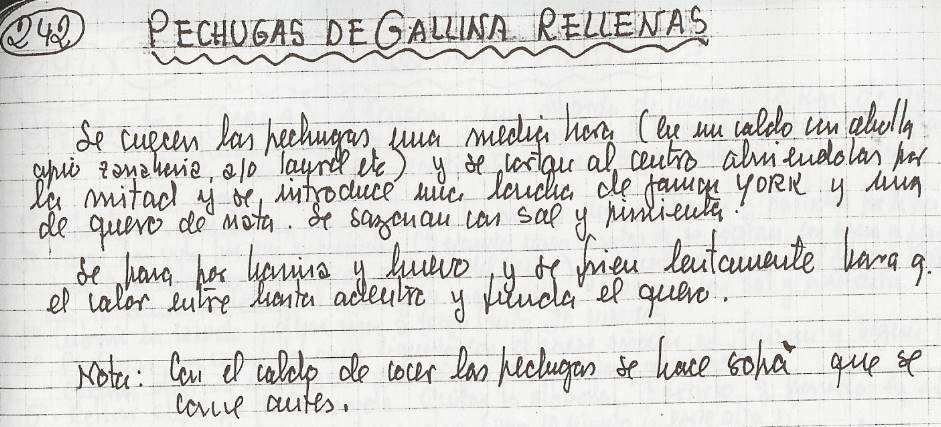 242 PECHUGAS DE GALLINA RELLENAS
Se cuecen las pechugas una media hora (en un caldo con cebolla
apio zanahoria, ajo laurel etc) y se cortan al centro abriendolas por
la mitad y se introduce una loncha de jamon YORK y una
de queso de nata. Se sazonan con sal y pimienta.
Se pasa por harina y huevo, y se frien lentamente para q.
el calor entre hasta adentro y funda el queso.
Nota: Con el caldo de cocer las pechugas se hace sopa que se
come antes.